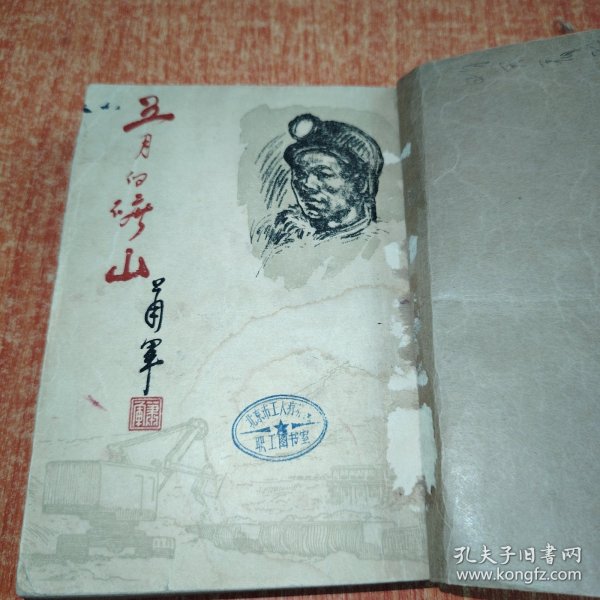 五月的矿山
萧军
北京市工人
职工图书室
孔夫子旧书网
www.kongfz.com